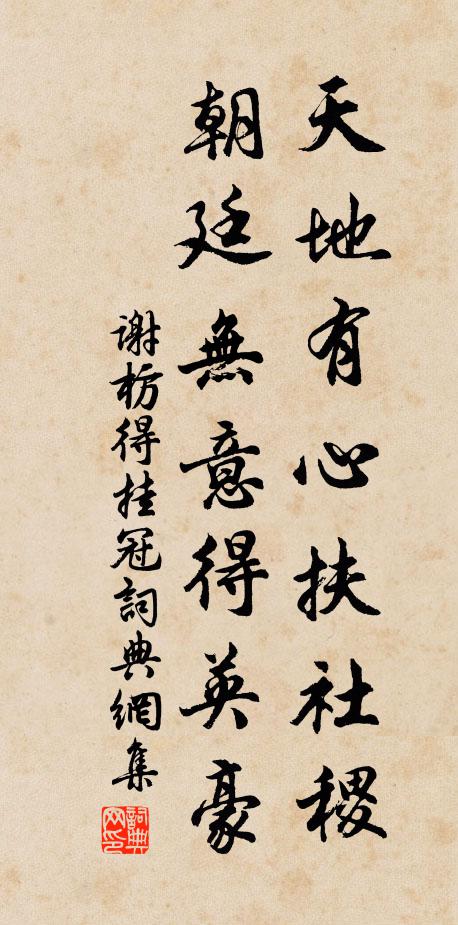 天地有心扶社稷
朝廷無意得英豪
謝枋得挂冠詞典網集
詞典
网印